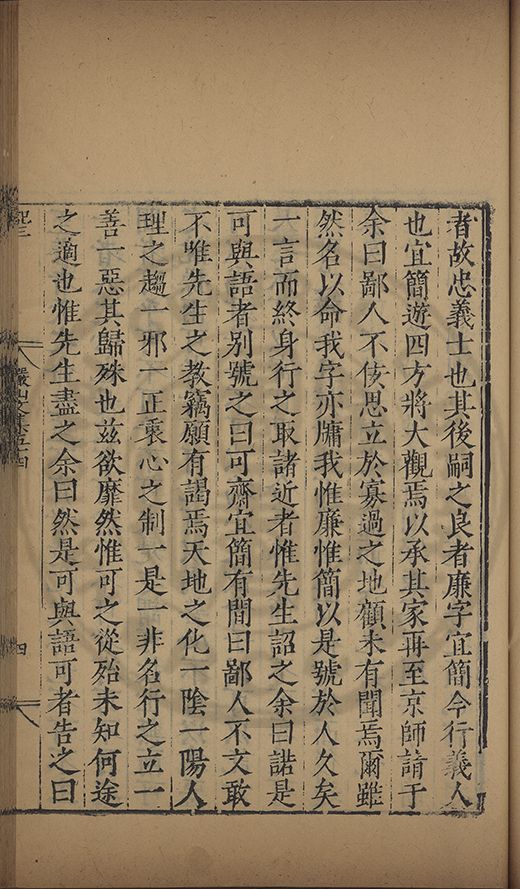 者故忠義士也其後嗣之良者廉字宜簡今行義人
也宜簡遊四方將大觀焉以承其家再至京師請于
余曰鄙人不佞思立於寡過之地顧未有聞焉爾雖
然名以命我字亦牗我惟廉惟簡以是號於人久矣
一言而終身行之取諸近者惟先生詔之余曰諾是
可與語者別號之曰可齋宜簡有閒曰鄙人不文敢
不唯先生之教竊願有謁焉天地之化一陰一陽人
理之趨一邪一正褱心之制一是一非名行之立一
善一惡其歸殊也茲欲靡然惟可之從殆未知何途
之適也惟先生盡之余曰然是可與語可者告之曰
四